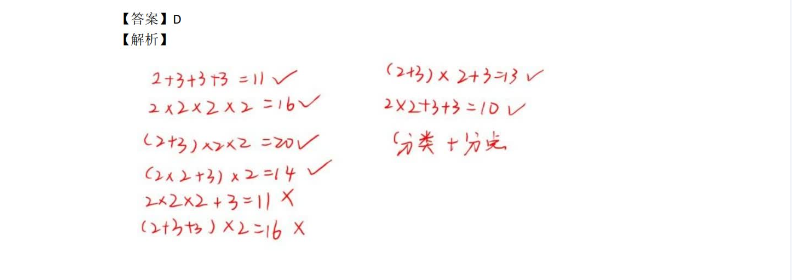 【答案】D
【解析】
2+3+3+3=11 ✓
2×2×2×2=16 ✓
(2+3)×2×2=20 ✓
(2×2+3)×2=14 ✓
2×2×2+3=11 ×
(2+3+3)×2=16 ×
(2+3)×2+3=13 ✓
2×2+3+3=10 ✓
分类+分步